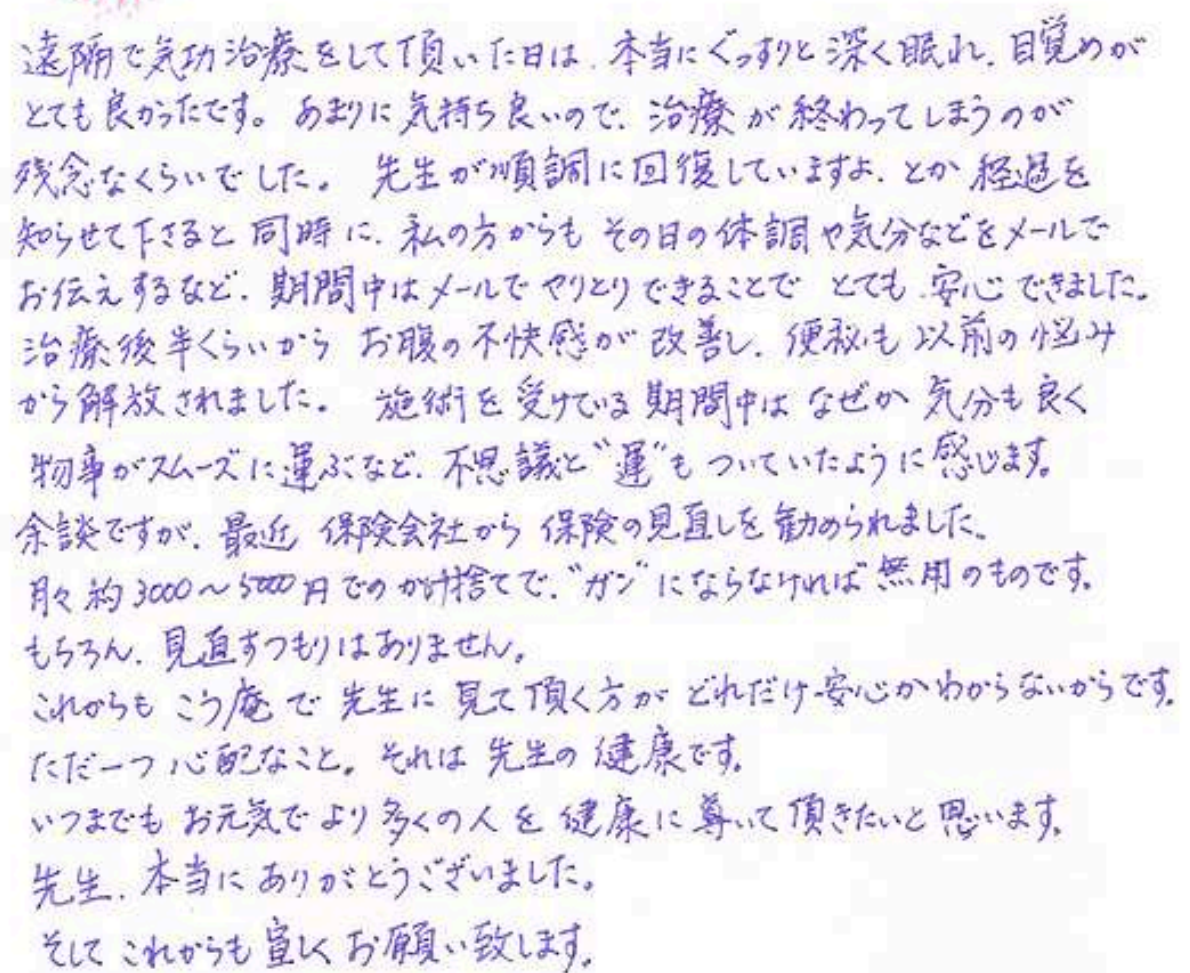 遠隔で気功治療をして頂いた日は、本当にぐっすりと深く眠れ、目覚めが
とても良かったです。あまりに気持ち良いので、治療が終わってしまうのが
残念なくらいでした。 先生が順調に回復していますよ、とか経過を
知らせて下さると同時に、私の方からもその日の体調や気分などをメールで
お伝えするなど、期間中はメールでやりとりできることでとても安心できました。
治療後半くらいからお腹の不快感が改善し、便秘も以前の悩み
から解放されました。 施術を受けている期間中はなぜか気分も良く
物事がスムーズに運ぶなど、不思議と“運”もついていたように感じます。
余談ですが、最近保険会社から保険の見直しを勧められました。
月々約3000～5000円でのかけ捨てで、“ガン”にならなければ無用のものです。
もちろん、見直すつもりはありません。
これからもこう庵で先生に見て頂く方がどれだけ安心かわからないからです。
ただ一つ心配なこと。それは先生の健康です。
いつまでもお元気でより多くの人を健康に導いて頂きたいと思います。
先生、本当にありがとうございました。
そしてこれからも宜しくお願い致します。